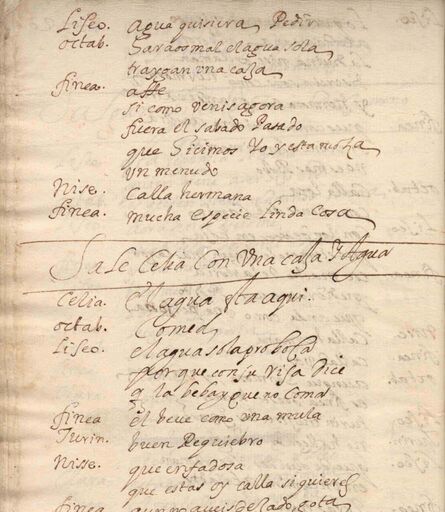 Liseo. agua quisiera Pedir
octab. Haraos mal el agua sola
traygan vna caxa
finea. affe
si como venis agora
fuera el sabado Pasado
que hicimos Yo y esta moza
vn menudo
Nise. Calla hermana
finea. mucha especie Linda Cosa
Sale Celia Con Vna caxa y Agua
Celia. El agua sta aqui.
octab. Comed
Liseo. el agua sola proboca
porque con su Risa Dice
q la beba y que no Coma
finea el beve como una mula
Turin. buen Requiebro
Nisse. que enfadosa
que estas oy calla si quieres
finea aun no aueis de lado gota